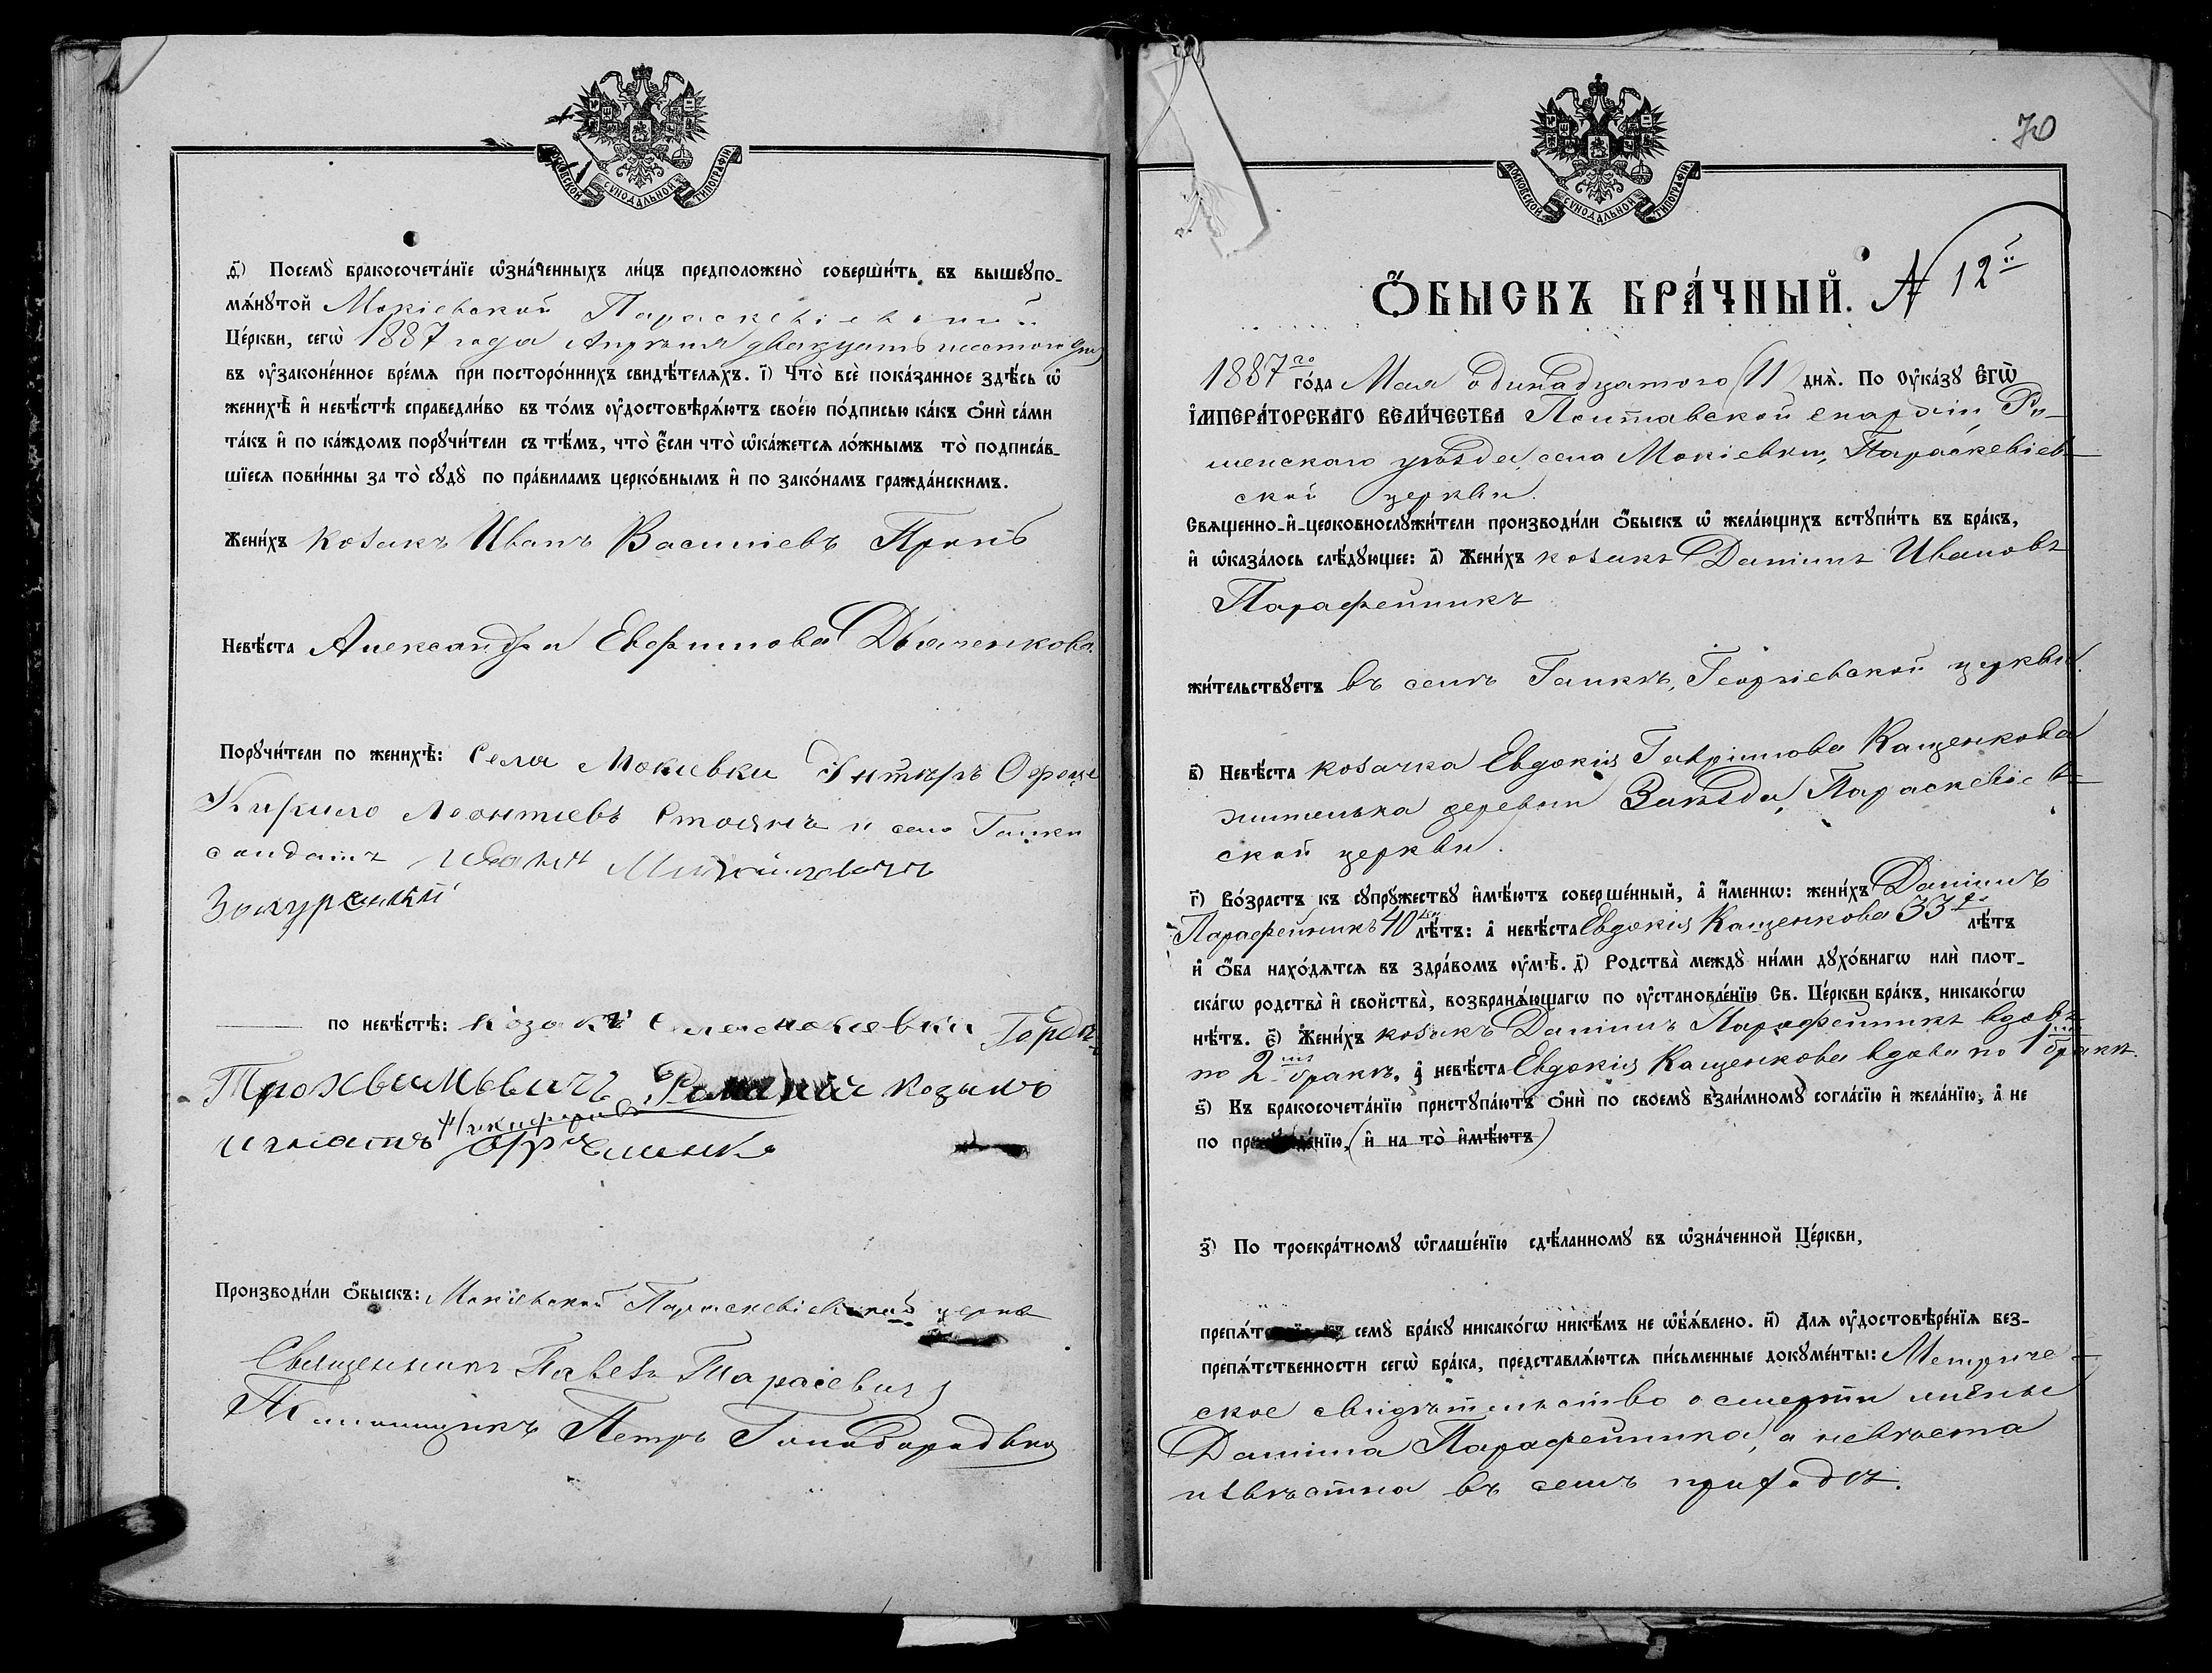 МОСКОВСКОЙ СѴНОДАЛЬНОЙ ТИПОГРАФІИ
ѳ҃) Посемꙋ̀ бракосочета́нїе ѡ҆зна́ченныхъ ли́цъ предположено̀ соверши́ть въ вышеꙋпо-
мѧ́нꙋтой Мокіевской Параскевіевской
Це́ркви, сегѡ̀ 1887 года Апрѣля двадцать шестого дня
въ ᲂу҆законе́нное вре́мѧ при посторо́ннихъ свидѣ́телѧхъ. і҃) Что̀ всѐ пока́занное здѣ́сь ѡ҆
женихѣ̀ и҆ невѣ́стѣ справедли́во въ то́мъ ᲂу҆достовѣрѧ́ютъ свое́ю по́дписью ка́къ ѻ҆нѝ са́ми
та́къ и҆ по ка́ждомъ порꙋчи́тели съ тѣ́мъ, что̀ є҆́сли что̀ ѡ҆ка́жетсѧ ло́жнымъ то̀ подписа́в-
шїесѧ пови́нны за то̀ сꙋдꙋ̀ по пра́виламъ церко́внымъ и҆ по зако́намъ гражда́нскимъ.
Жени́хъ козакъ Иванъ Василіевъ
Невѣ́ста Александра Евфимова Дьяченкова
Порꙋчи́тели по женихѣ̀: Села Мокиевки
Кирило Леонтиевъ Стоянъ и села Гапки
солдатъ Иванъ
по невѣ́стѣ: козакъ села мокиевки
козакъ
игнатъ
Производи́ли ѻ҆́быскъ: Мокіевской Параскевіевской церкви
Священникъ Павелъ Тарасевичъ
Псаломщикъ Петръ
70
МОСКОВСКОЙ СѴНОДАЛЬНОЙ ТИПОГРАФІИ
Ѻ҆́БЫСКЪ БРА́ЧНЫЙ. № 12й
1887го го́да Мая одинадцатого (11) днѧ̀. По ᲂу҆ка́зꙋ Є҆ГѠ̀
І҆МПЕРА́ТОРСКАГО ВЕЛИ́ЧЕСТВА Полтавской епархіи, Ро-
менскаго уѣзда, села Мокіевки, Параскевіев-
ской церкви.
Свѧщенно-и҆-церковнослꙋжи́тели производи́ли ѻ҆́быскъ ѡ҆ жела́ющихъ встꙋпи́ть въ бра́къ,
и҆ ѡ҆каза́лось слѣ́дꙋющее: а҃) Жени́хъ козакъ Даніилъ Ивановъ
Парафейникъ
жи́тельствꙋетъ въ селѣ Гапкѣ, Георгіевской церкви.
в҃) Невѣ́ста козачка Евдокія Гавріилова Кащенкова
жителька деревни Заѣзда, Параскевіев-
ской церкви.
г҃) Во́зрастъ къ сꙋпрꙋ́жествꙋ и҆мѣ́ютъ соверше́нный, а҆ и҆́меннѡ: жени́хъ Даніилъ
Парафейникъ 40 лѣ́тъ: а҆ невѣ́ста Евдокія Кащенкова 33 лѣ́тъ
и҆ ѻ҆́ба нахо́дѧтсѧ въ здра́вомъ ᲂу҆мѣ̀. д҃) Родства̀ междꙋ̀ ни́ми дꙋхо́внагѡ илѝ плот-
ска́гѡ родства̀ и҆ сво́йства̀, возбранѧ́ющагѡ по ᲂу҆становле́нїю Св. Це́ркви бра́къ, никако́гѡ
нѣ́тъ. є҃) Жени́хъ козакъ Даніилъ Парафейникъ вдовъ
по 2 бракѣ, а҆ невѣ́ста Евдокія Кащенкова вдова по 1 бракѣ.
ѕ҃) Къ бракосочета́нїю пристꙋпа́ютъ ѻ҆нѝ по своемꙋ̀ взаи́мномꙋ согла́сїю и҆ жела́нїю, а҆ не
по при нїю, (и҆ на то̀ и҆мѣ́ютъ)
з҃) По троекра́тномꙋ ѡ҆глаше́нїю сдѣ́ланномꙋ въ ѡ҆зна́ченной Це́ркви,
препѧ́т семꙋ̀ бра́кꙋ никако́гѡ никѣ́мъ не ѡ҆б̾ѧ́влено. и҃) Длѧ ᲂу҆достовѣре́нїѧ без-
препѧ́тственности сегѡ̀ бра́ка, представлѧ́ютсѧ пи́сьменные докꙋме́нты: Метриче-
ское свидѣтельство о смерти жены
Даніила Парафейника, а невѣста
извѣстна въ семъ приходѣ.